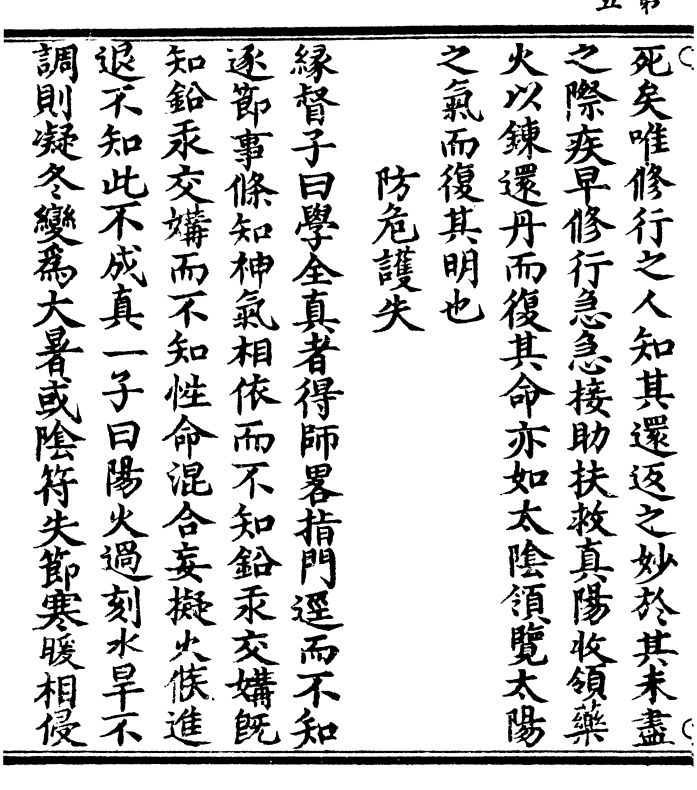 死矣唯修行之人知其還返之妙於其未盡
之際疾早修行急急接助扶救真陽收領藥
火以鍊還丹而復其命亦如太陰領覽太陽
之氣而復其明也
防危護失
緣督子曰學全真者得師畧指門逕而不知
逐節事條知神氣相依而不知鉛汞交媾旣
知鉛汞交媾而不知性命混合妄擬火候進
退不知此不成真一子曰陽火過刻水旱不
調則凝冬變爲大暑或陰符失節寒暖相侵